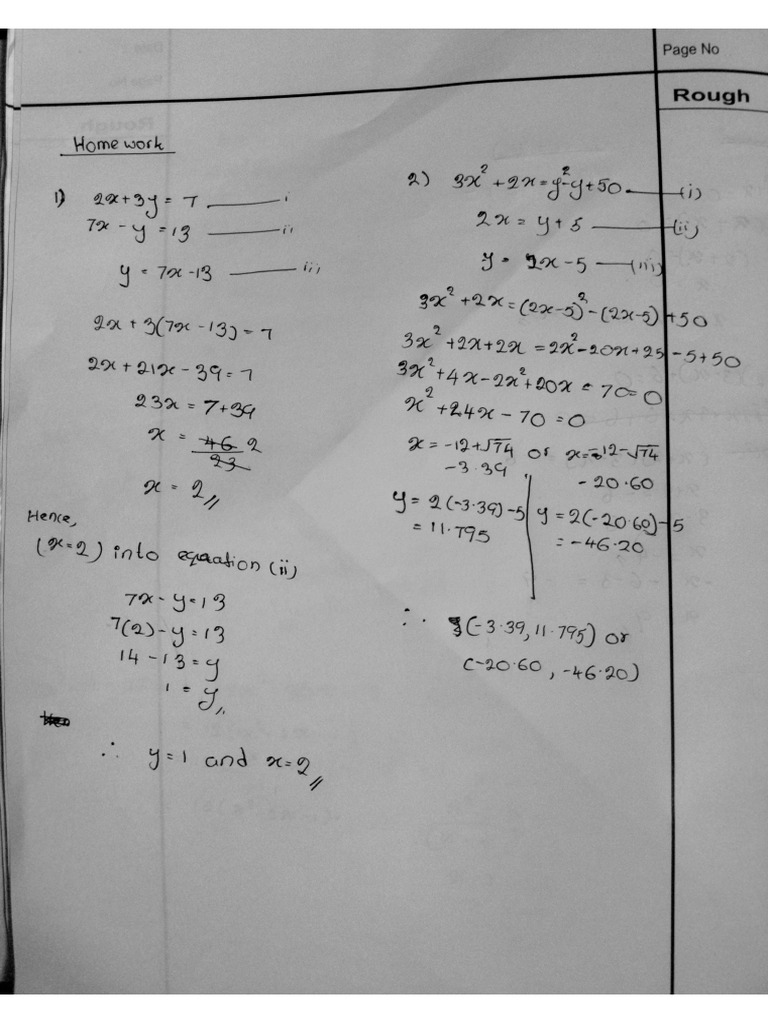 Page No
Rough
Homework
1) 2x+3y = 7 ——— i
7x - y = 13 ——— ii
y = 7x-13 ——— iii
2x + 3(7x - 13) = 7
2x + 21x - 39 = 7
23x = 7+39
x = 46/23 2
x = 2
Hence,
(x=2) into equation (ii)
7x - y = 13
7(2) - y = 13
14 - 13 = y
1 = y
∴ y=1 and x=2
2) 3x² + 2x = y²-y+50 ——— (i)
2x = y + 5 ——— (ii)
y = 2x - 5 ——— (iii)
3x² + 2x = (2x-5)² - (2x-5) + 50
3x² + 2x + 2x = 2x² - 20x + 25 - 5 + 50
3x² + 4x - 2x² + 20x - 70 = 0
x² + 24x - 70 = 0
x = -12+√74 or x = -12-√74
-3.39
-20.60
y = 2(-3.39)-5
= 11.795
y = 2(-20.60)-5
= -46.20
∴ (-3.39, 11.795) or
(-20.60, -46.20)